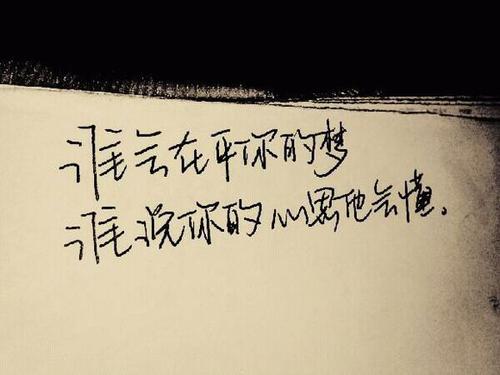 谁会在乎你的梦
谁说你的心累他会懂。